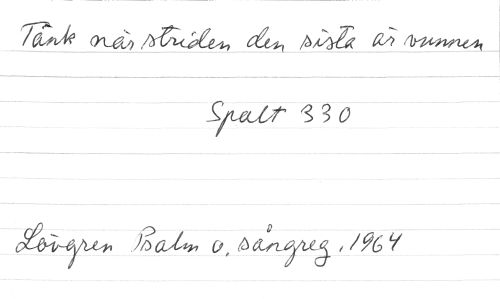 Tänk när striden den sista är vunnen
Spalt 330
Lövgren Psalm o. sångreg. 1964